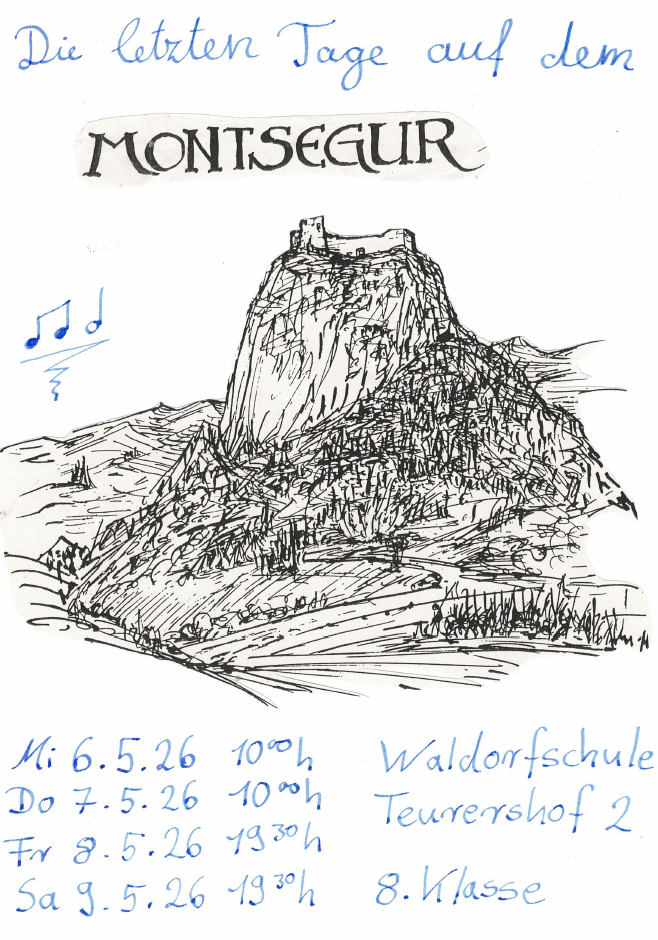 Die letzten Tage auf dem
MONTSEGUR
Mi 6.5.26 10⁰⁰h
Do 7.5.26 10⁰⁰h
Fr 8.5.26 19³⁰h
Sa 9.5.26 19³⁰h
Waldorfschule
Teurershof 2
8. Klasse